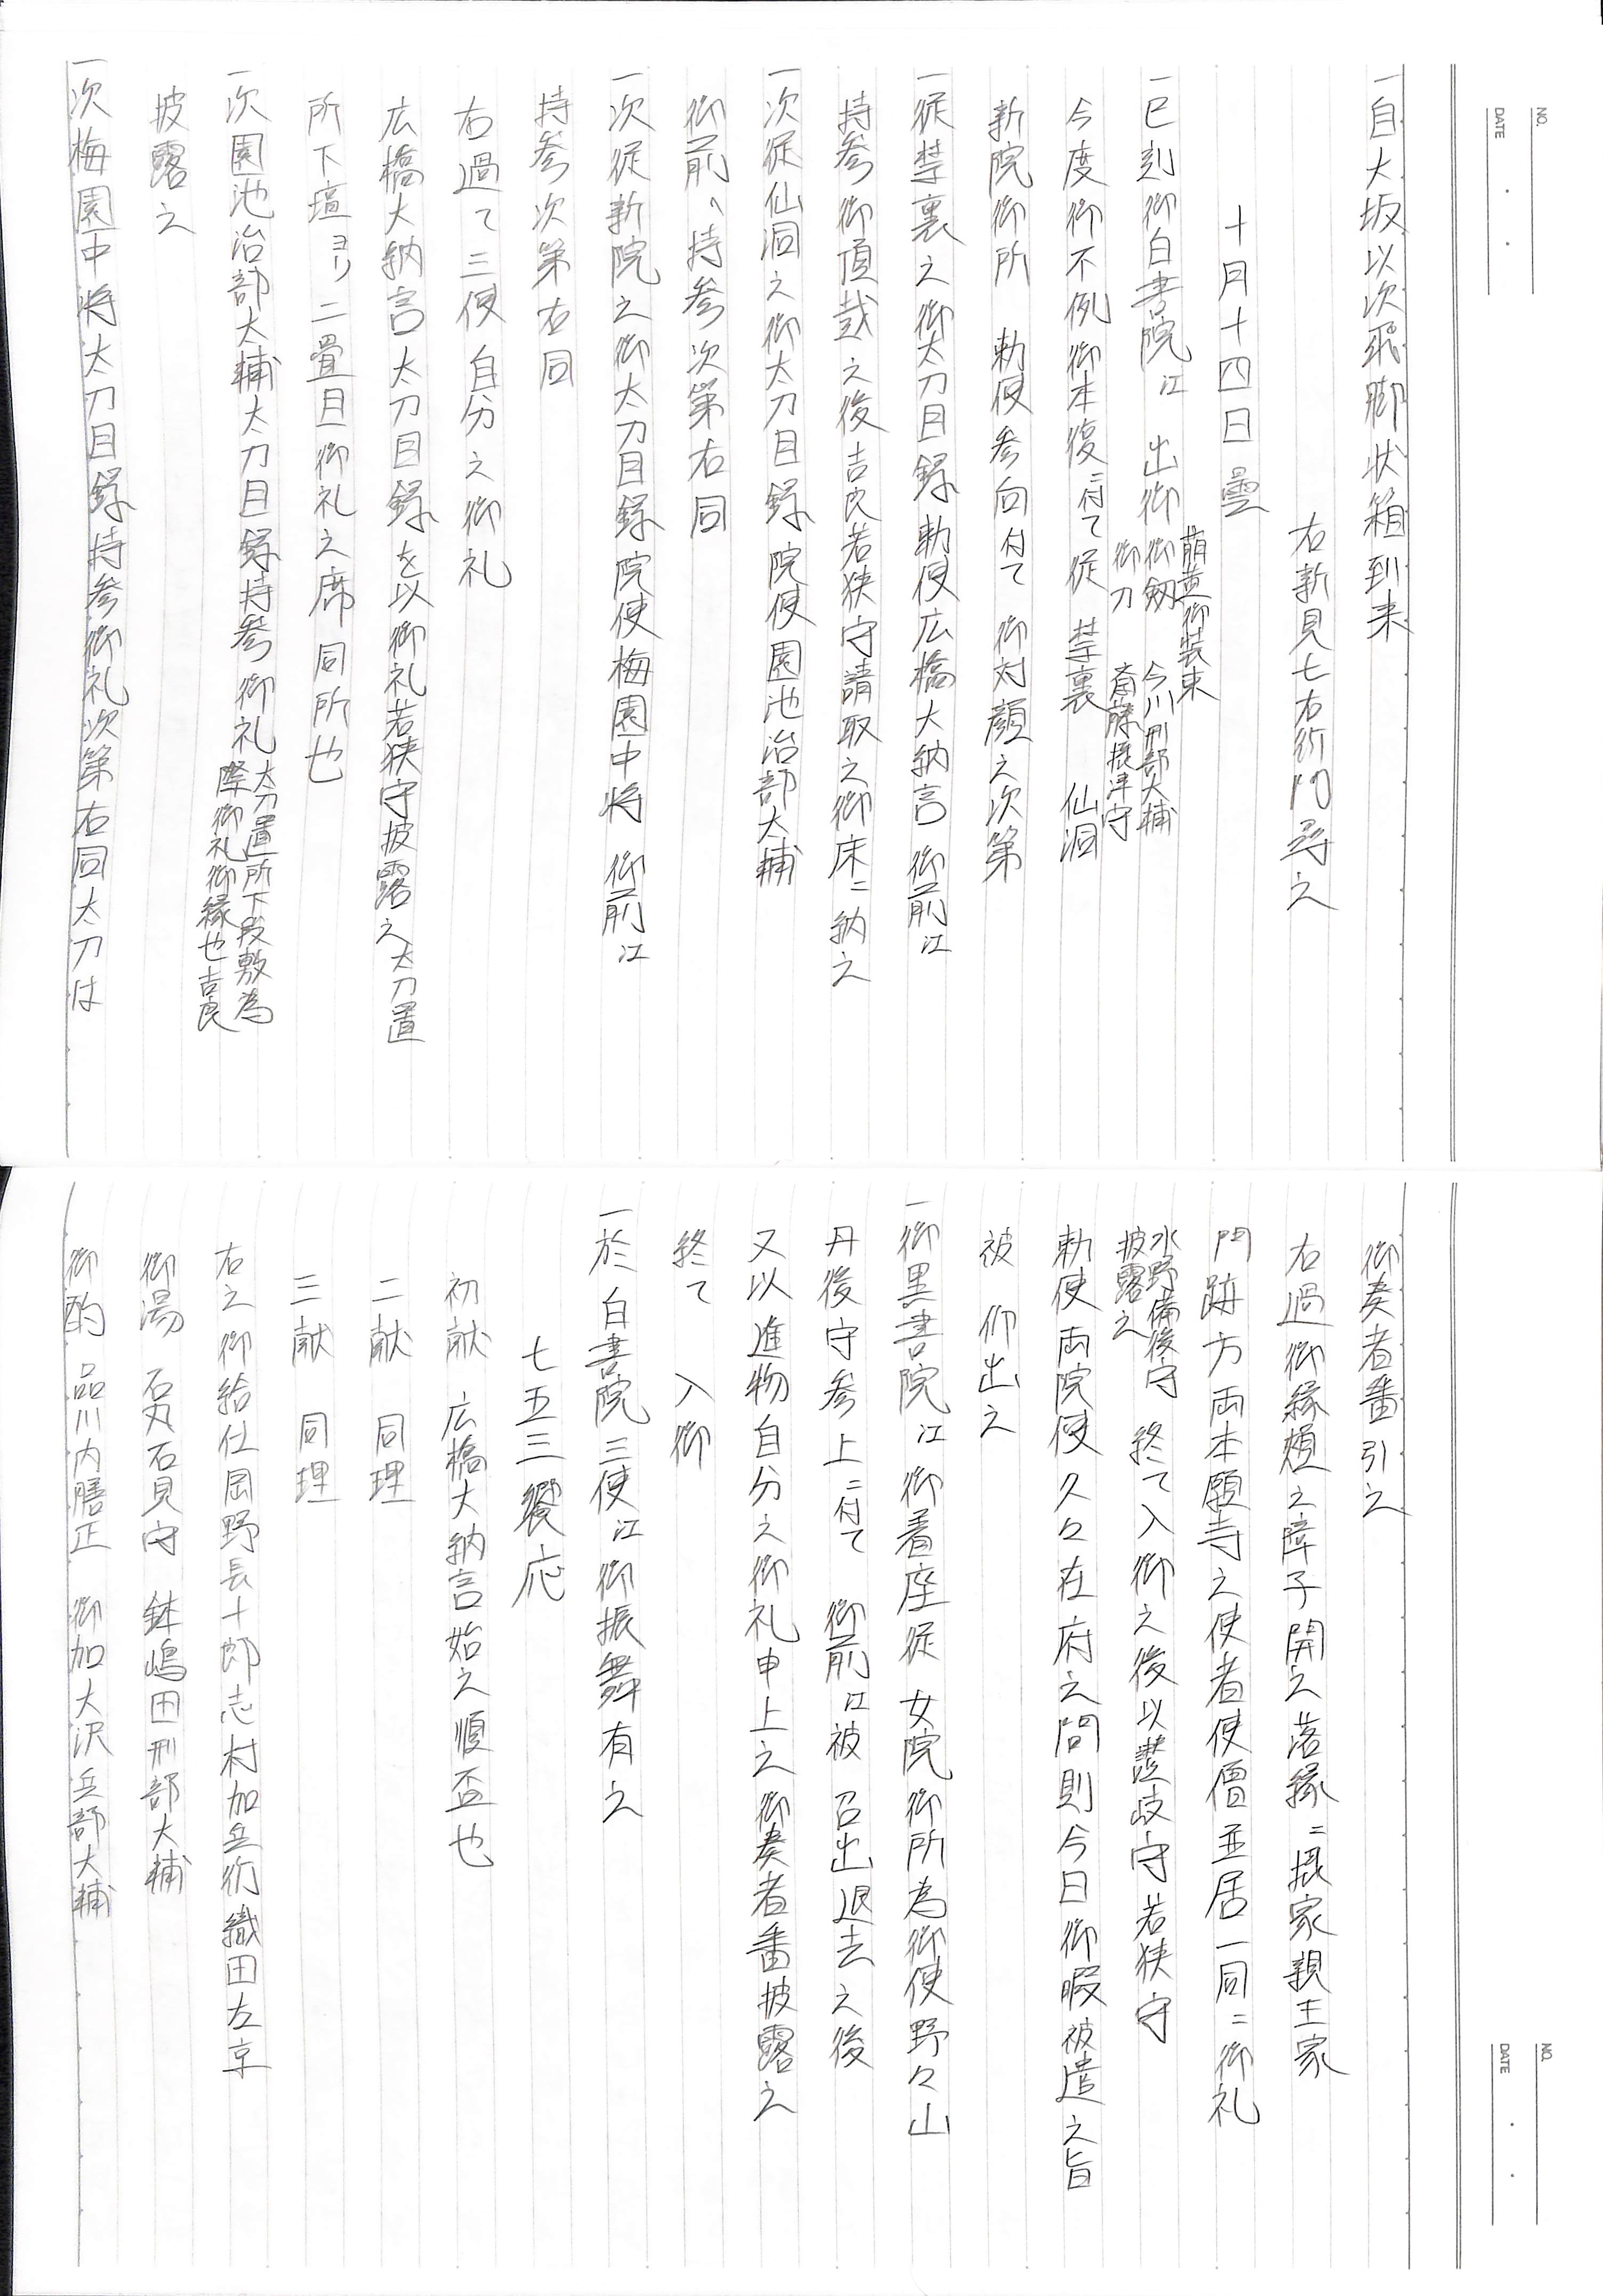 NO.
DATE
一自大坂以次飛脚状箱到来
右新見七右衛門尋之
十月十四日 曇
一巳刻御白書院江 出御 萠黄御装束 御劔 今川刑部大輔 御刀 斎藤摂津守
今度御不例御本復ニ付て従 禁裏 仙洞
新院御所 勅使参向付て 御対顔之次第
一従禁裏之御太刀目録勅使広橋大納言 御前江
持参御頂戴之後吉良若狭守請取之御床ニ納之
一次従仙洞之御太刀目録院使園池治部大輔
御前へ持参次第右同
一次従新院之御太刀目録院使梅園中将 御前江
持参次第右同
右過て三使自分之御礼
広橋大納言太刀目録を以御礼若狭守披露之太刀置
所下壇ヨリ二畳目御礼之席同所也
一次園池治部大輔太刀目録持参御礼 太刀置所下段敷為 際御礼御縁也吉良
披露之
一次梅園中将太刀目録持参御礼次第右同太刀は
NO.
DATE
御奏者番引之
右過御縁頬之障子開之落縁ニ摂家親王家
門跡方両本願寺之使者使僧並居一同ニ御礼
水野備後守披露之 終て入御之後以壱岐守若狭守
勅使両院使久々在府之間則今日御暇被遣之旨
被 仰出之
一御黒書院江御着座従女院御所為御使野々山
丹後守参上ニ付て 御前江被 召出退去之後
又以進物自分之御礼申上之御奏者番披露之
終て 入御
一於白書院三使江御振舞有之
七五三饗応
初献 広橋大納言始之順盃也
二献 同理
三献 同理
右之御給仕岡野長十郎志村加兵衛織田左京
御湯 石丸石見守 鉢嶋田刑部大輔
御酌 品川内膳正 御加大沢兵部大輔